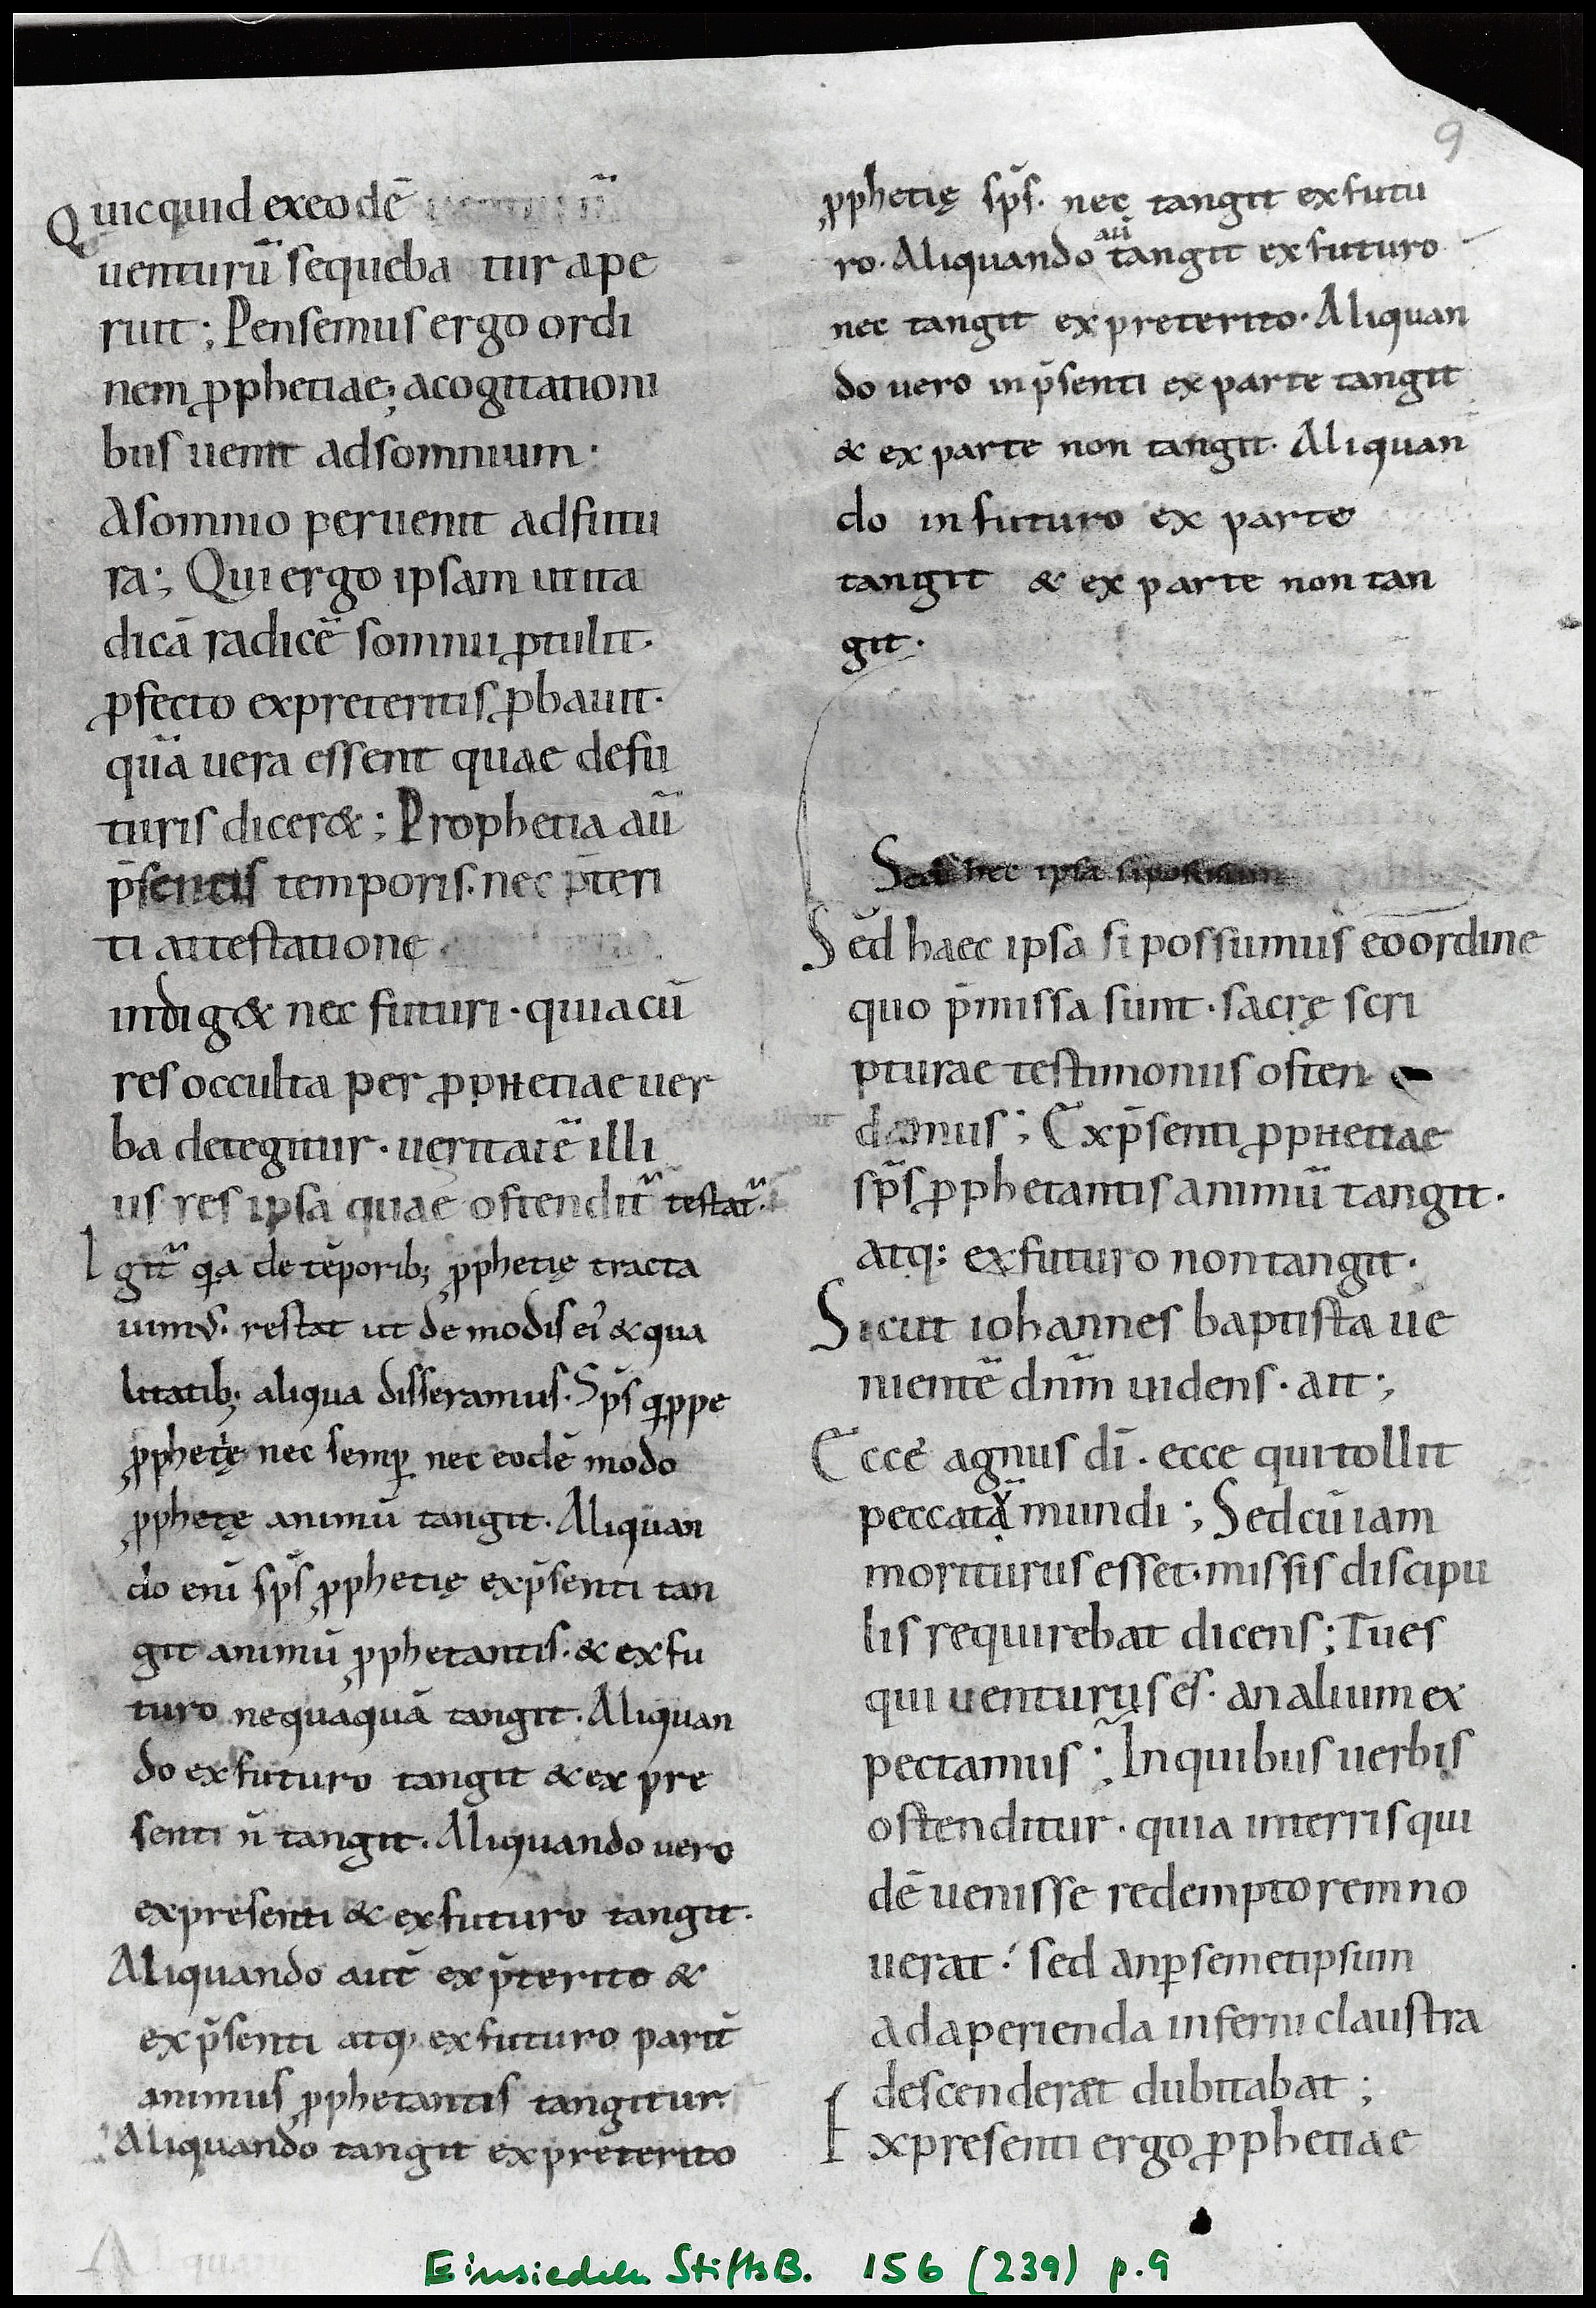 9
Quicquid exeodē
uenturū sequeba tur ape
ruit; Pensemus ergo ordi
nem ꝓphetiae; acogitationi
bus uenit adsomnium·
Asomnio peruenit adfutu
ra; Qui ergo ipsam ut ita
dicā radicē somnii ꝓtulit·
ꝓfecto expreteritis ꝓbauit·
quā uera essent quae defu
turis dicer&; Prophetia aū
p̄sentis temporis· nec p̄teri
ti attestatione
indig& nec futuri· quiacū
res occulta per ꝓphetiae uer
ba detegitur· ueritatē illi
us res ipsa quae ostendit᷑ testat᷑·
Igit᷑ qa de tēporib; ꝓphetię tracta
uim᷒· restat ut de modis ei᷒ & qua
litatib; aliqua disseramus· Sp̄s qippe
ꝓphetię nec semꝑ nec eodē modo
ꝓphetę animū tangit· Aliquan
do eni sp̄s ꝓphetię exp̄senti tan
git animū ꝓphetantis· & ex fu
turo nequaquā tangit· Aliquan
do ex futuro tangit & ex pre
senti n̄ tangit· Aliquando uero
expresenti & ex futuro tangit·
Aliquando aut̄ ex p̄terito &
ex p̄senti atq; ex futuro parit̄
animus ꝓphetantis tangitur·
Aliquando tangit expreterito
ꝓphetię sp̄s· nec tangit exfutu
ro· Aliquando aū tangit ex futuro
nec tangit ex preterito· Aliquan
do uero in p̄senti ex parte tangit
& ex parte non tangit· Aliquan
do in futuro ex parte
tangit & ex parte non tan
git·
Sed hec ipsa si possum
Sed haec ipsa si possumus eo ordine
quo p̄missa sunt· sacrę scri
pturae testimoniis osten
damus; Exp̄senti ꝓphetiae
sp̄s ꝓphetantis animū tangit·
atq: exfuturo non tangit·
Sicut iohannes baptista ue
nientē dnm̄ uidens· ait·;
Ecce agnus dī· ecce qui tollit
peccata mundi; Sed cū iam
moriturus esset· missis discipu
lis requirebat dicens; Tu es
qui uenturus es· an alium ex
pectamus; In quibus uerbis
ostenditur· quia interris qui
dē uenisse redemptorem no
uerat· sed anꝑsemetipsum
adaperienda inferni claustra
descenderet dubitabat;
Expresenti ergo ꝓphetiae
Einsiedeln StiftsB. 156 (239) p.9